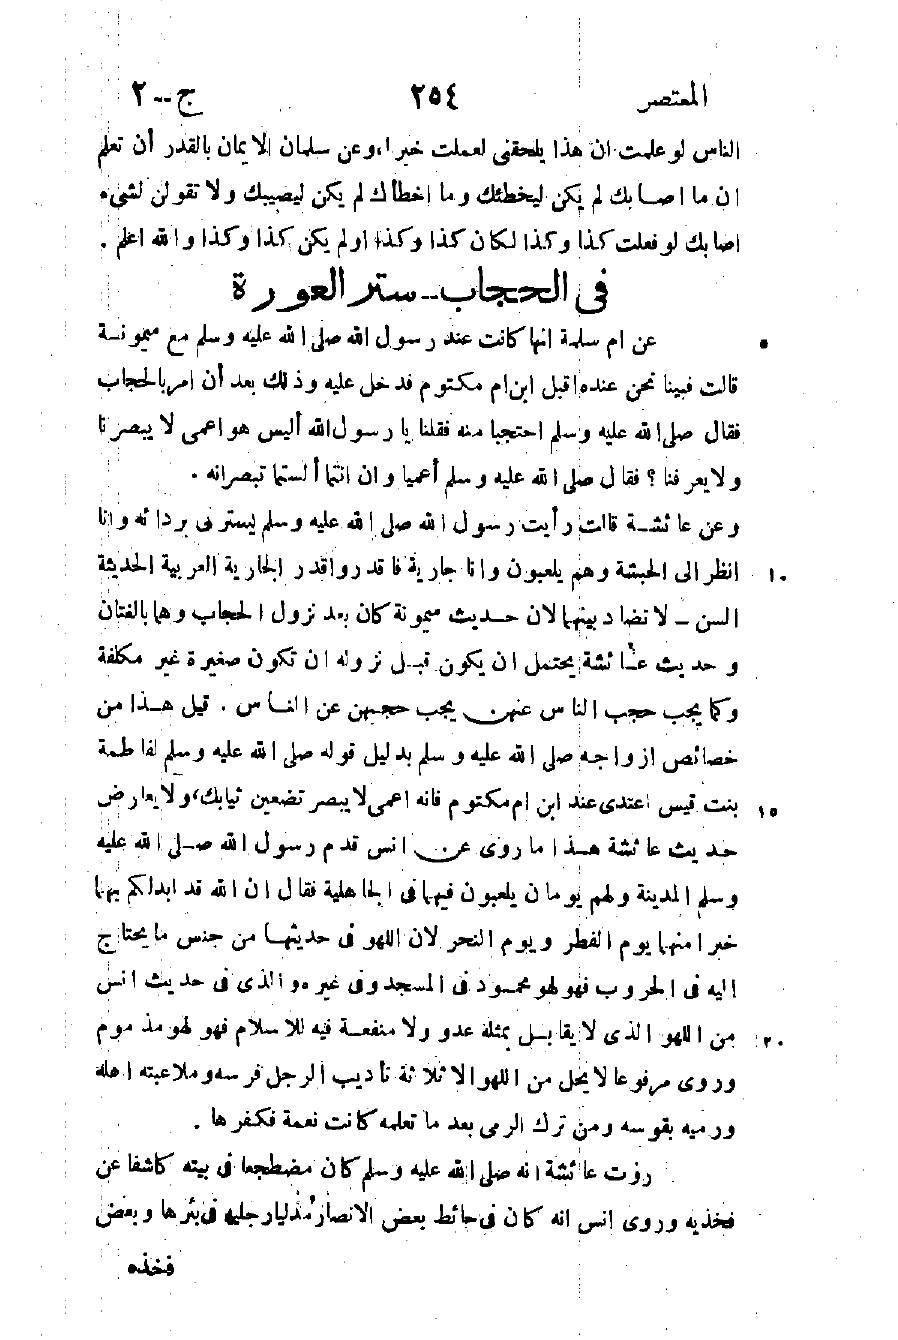 المعتصر ٢٥٤ ج--٢
الناس لو علمت ان هذا يلحقنى لعملت خيرا، وعن سلمان الايمان بالقدر أن تعلم
ان ما اصابك لم يكن ليخطئك وما اخطأك لم يكن ليصيبك ولا تقولن لشىء
اصابك لو فعلت كذا وكذا لكان كذا وكذا او لم يكن كذا وكذا والله اعلم .
فى الحجاب--ستر العورة
عن ام سلمة انها كانت عند رسول الله صلى الله عليه وسلم مع ميمونة ٥
قالت فبينا نحن عنده اقبل ابن ام مكتوم فدخل عليه وذلك بعد أن امر بالحجاب
فقال صلى الله عليه وسلم احتجبا منه فقلنا يا رسول الله أليس هو اعمى لا يبصرنا
ولا يعرفنا ؟ فقال صلى الله عليه وسلم أعميا وان انتما ألستما تبصرانه .
وعن عائشة قالت رأيت رسول الله صلى الله عليه وسلم يسترنى بردائه وانا
انظر الى الحبشة وهم يلعبون وانا جارية فاقدروا قدر الجارية العربية الحديثة ١٠
السن – لا تضاد بينهما لان حديث ميمونة كان بعد نزول الحجاب وهما بالغتان
وحديث عائشة يحتمل ان يكون قبل نزوله ان تكون صغيرة غير مكلفة
وكما يجب حجب الناس عنهن يجب حجبهن عن الناس . قيل هذا من
خصائص ازواجه صلى الله عليه وسلم بدليل قوله صلى الله عليه وسلم لفاطمة
بنت قيس اعتدى عند ابن ام مكتوم فانه اعمى لا يبصر تضعين ثيابك، ولا يعارض ١٥
حديث عائشة هذا ما روى عن انس قدم رسول الله صلى الله عليه
وسلم المدينة ولهم يومان يلعبون فيها فى الجاهلية فقال ان الله قد ابدلكم بهما
خيرا منهما يوم الفطر ويوم النحر لان اللهو فى حديثها من جنس ما يحتاج
اليه فى الحروب فهو لهو محمود فى المسجد وفى غيره والذى فى حديث انس
من اللهو الذى لا يقابل بمثله عدو ولا منفعة فيه للاسلام فهو لهو مذموم ٢٠
وروى مرفوعا لا يحل من اللهو الا ثلاثة تأديب الرجل فرسه وملاعبته اهله
ورميه بقوسه ومن ترك الرمى بعد ما تعلمه كانت نعمة فكفرها .
روت عائشة انه صلى الله عليه وسلم كان مضطجعا فى بيته كاشفا عن
فخذيه وروى انس انه كان فى حائط بعض الانصار مُدليا رجليه فى بئرها وبعض
فخذه